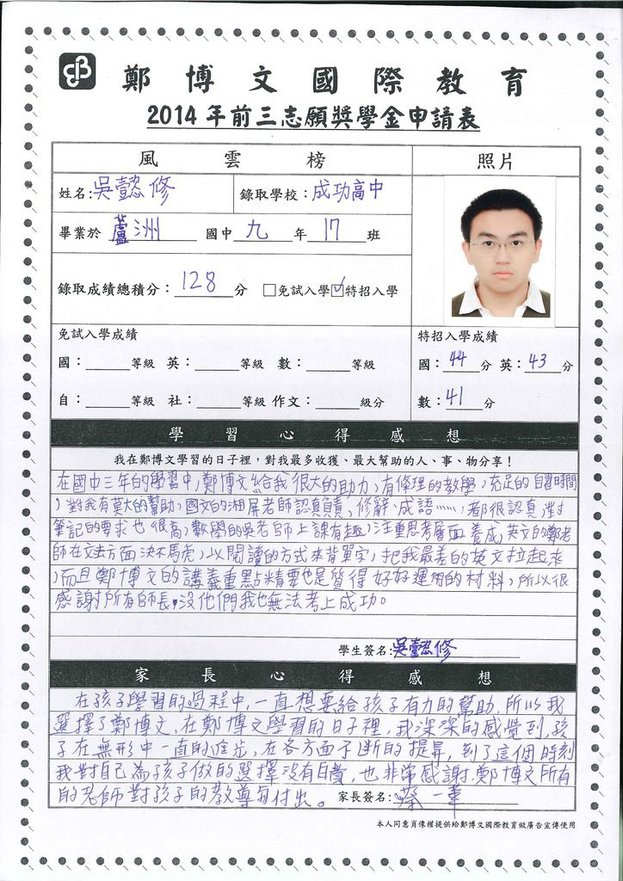 鄭博文國際教育
2014年前三志願獎學金申請表
風雲榜
照片
姓名:吳懿修 錄取學校:成功高中
畢業於 蘆洲 國中 九 年 17 班
錄取成績總積分:128分 □免試入學☑特招入學
免試入學成績
國:____等級 英:____等級 數:____等級
自:____等級 社:____等級 作文:____級分
特招入學成績
國:44分 英:43分
數:41分
學習心得感想
我在鄭博文學習的日子裡,對我最多收獲、最大幫助的人、事、物分享!
在國中三年的學習中,鄭博文給我很大的助力,有條理的教學,充足的自習時間
,對我有莫大的幫助,國文的湘屏老師認真負責,修辭、成語……都很認真,對
筆記的要求也很高,數學的吳老師上課有趣,注重思考層面養成,英文的鄭老
師在文法方面決不馬虎,以閱讀的方式來背單字,把我最差的英文拉起來
,而且鄭博文的講義重點精要也是值得好好運用的材料,所以很
感謝所有師長,沒他們我也無法考上成功。
學生簽名:吳懿修
家長心得感想
在孩子學習的過程中,一直想要給孩子有力的幫助,所以我
選擇了鄭博文,在鄭博文學習的日子裡,我深深的感覺到,孩
子在無形中一直的進步,在各方面不斷的提昇,到了這個時刻
我對自己為孩子做的選擇沒有白費,也非常感謝鄭博文所有
的老師對孩子的教導與付出。 家長簽名:蔡一華
本人同意肖像權提供給鄭博文國際教育做廣告宣傳使用